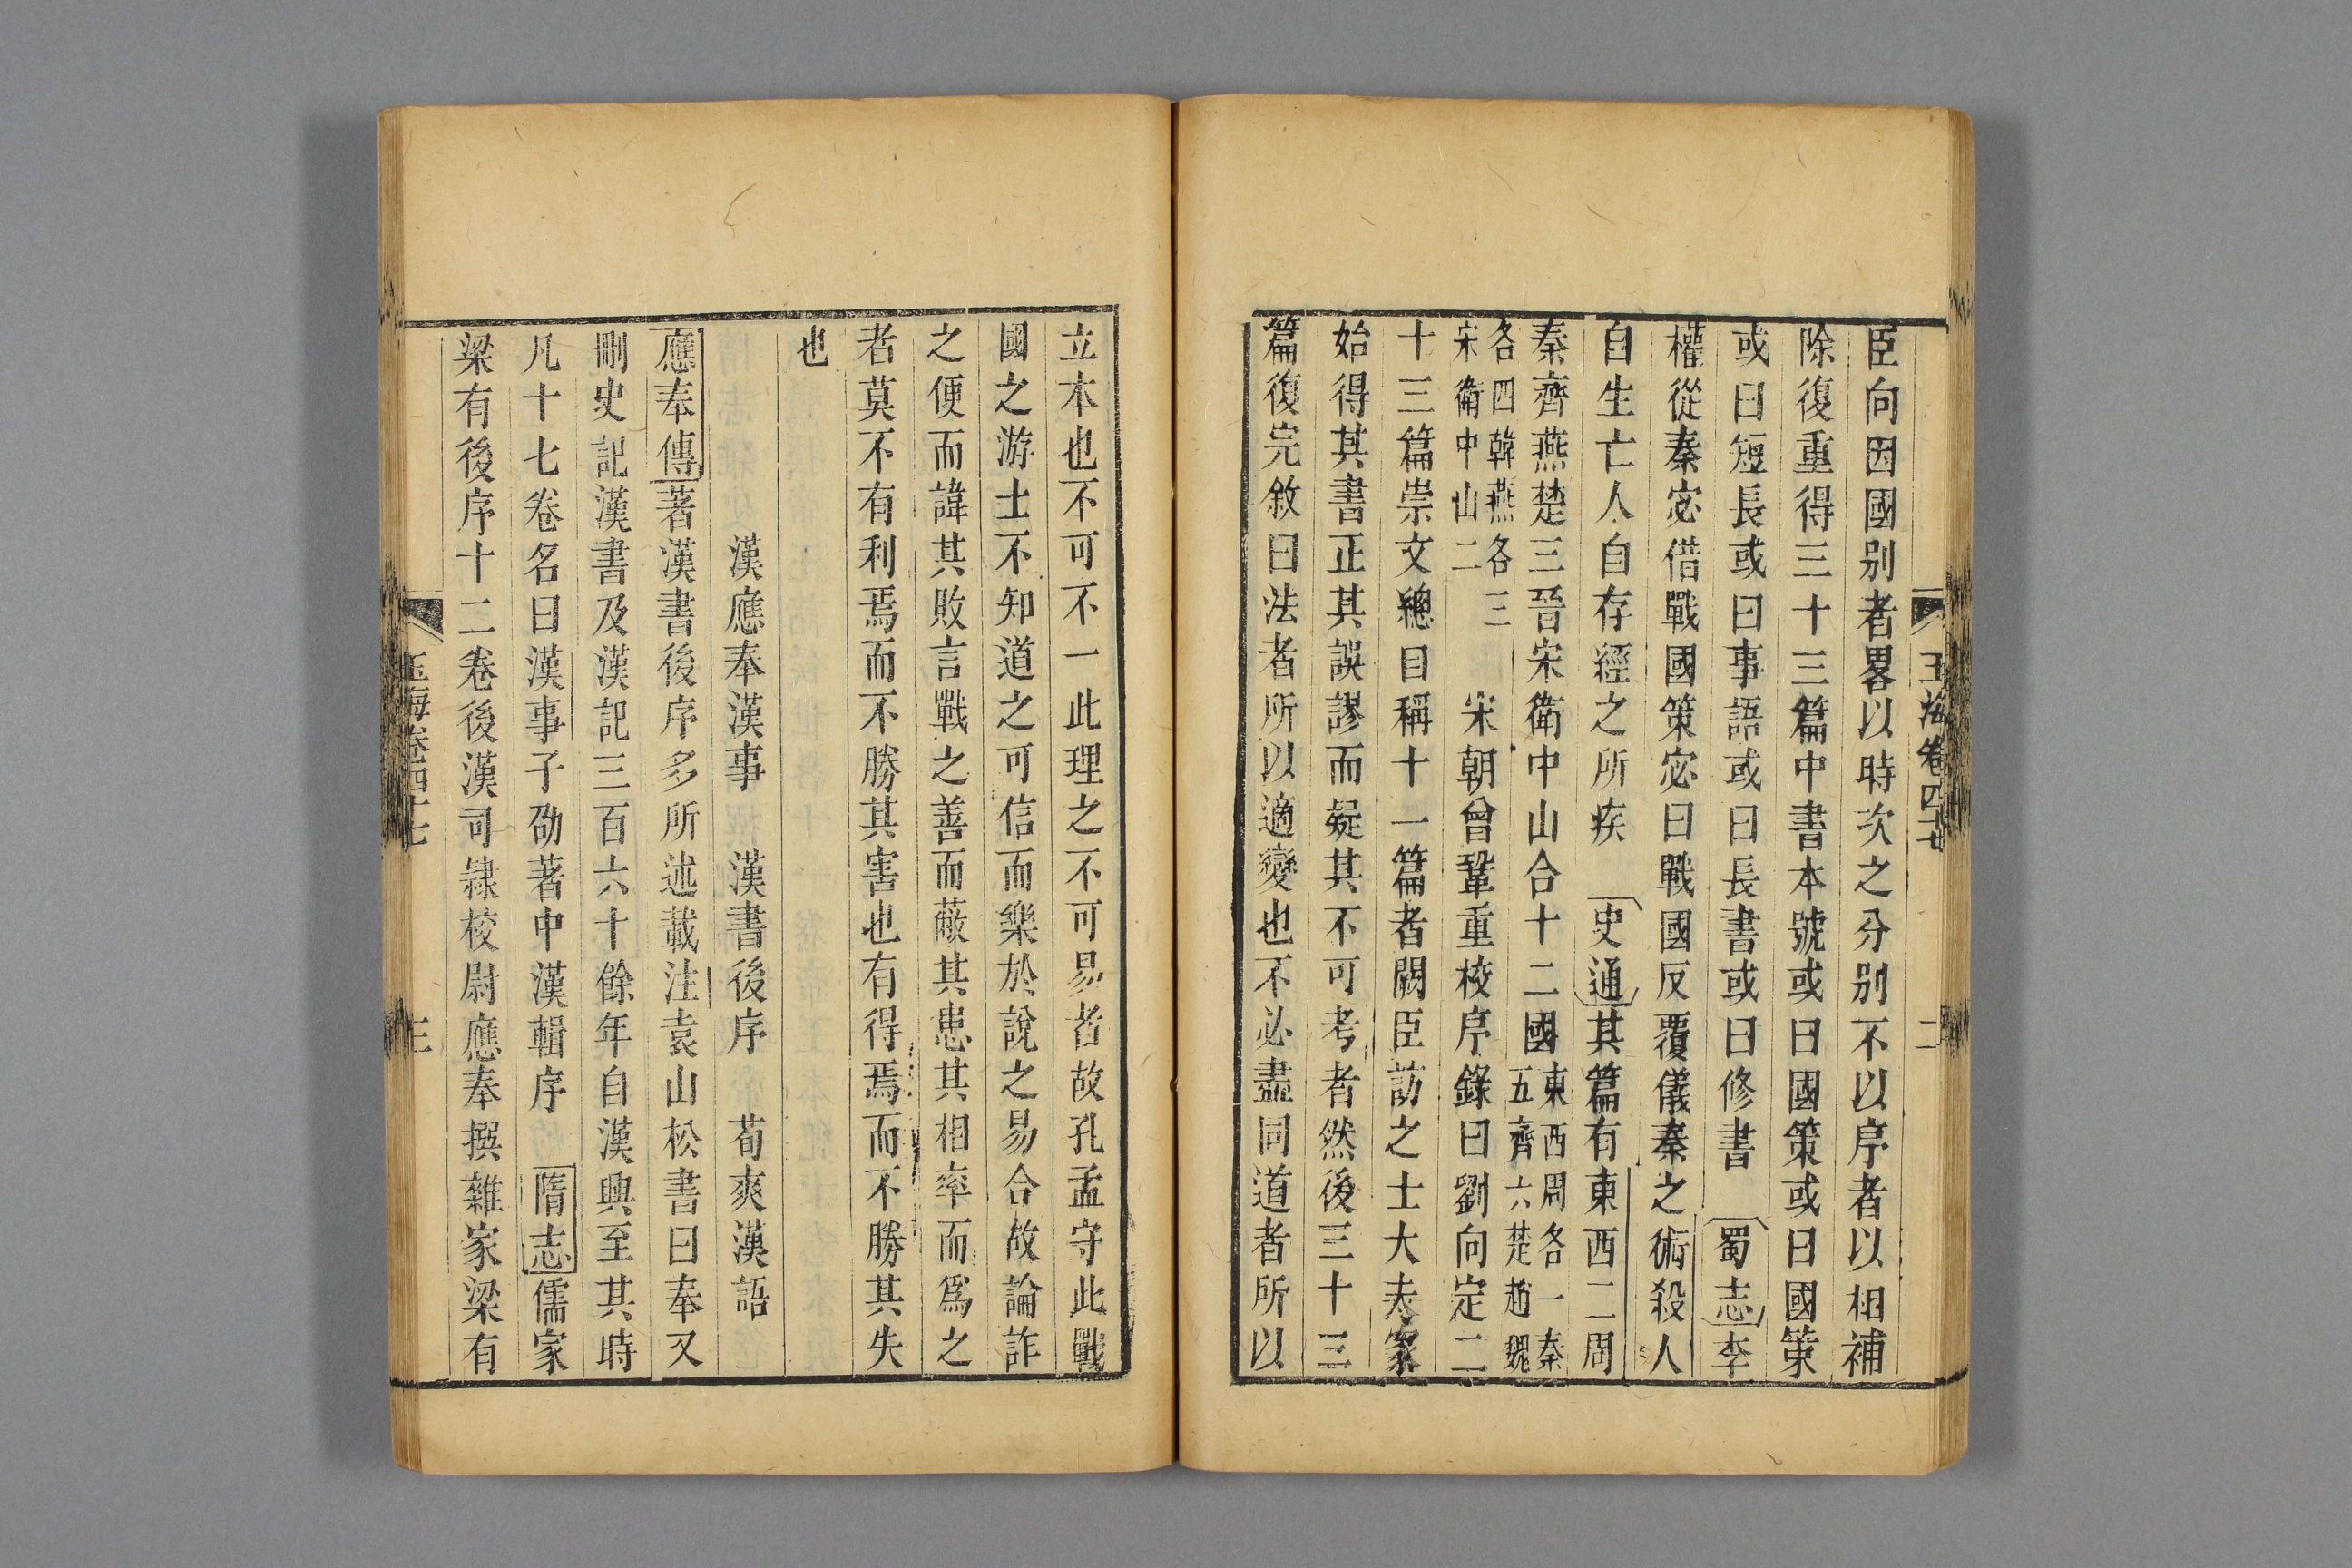 玉海卷四十七
二
臣向因國别者畧以時次之分别不以序者以相補
除復重得三十三篇中書本號或曰國策或曰國策
或曰短長或曰事語或曰長書或曰修書 蜀志李
權從秦宓借戰國策宓曰戰國反覆儀秦之術殺人
自生亡人自存經之所疾 史通其篇有東西二周
秦齊燕楚三晉宋衛中山合十二國東西周各一秦五齊六楚趙魏
各四韓燕各三宋衛中山二 宋朝曾鞏重校序錄曰劉向定二
十三篇崇文總目稱十一篇者闕臣訪之士大夫家
始得其書正其誤謬而疑其不可考者然後三十三
篇復完敘曰法者所以適變也不必盡同道者所以
立本也不可不一此理之不可易者故孔孟守此戰
國之游士不知道之可信而樂於說之易合故論詐
之便而諱其敗言戰之善而蔽其患其相率而爲之
者莫不有利焉而不勝其害也有得焉而不勝其失
也
漢應奉漢事 漢書後序 荀爽漢語
應奉傳著漢書後序多所述載注袁山松書曰奉又
刪史記漢書及漢記三百六十餘年自漢興至其時
凡十七卷名曰漢事子劭著中漢輯序 隋志儒家
梁有後序十二卷後漢司隸校尉應奉撰雜家梁有
玉海卷四十七
三